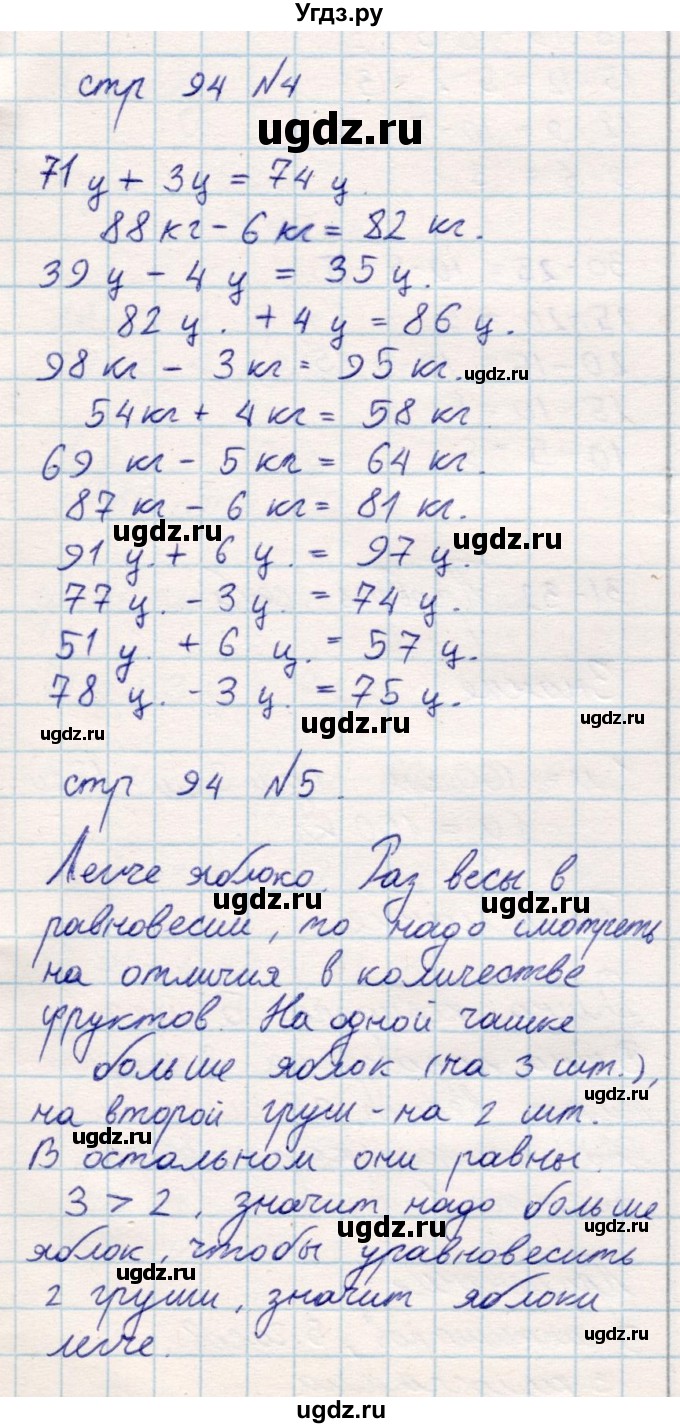 Угдз.ру
стр 94 №4
ugdz.ru
71 ц + 3 ц = 74 ц.
88 кг - 6 кг = 82 кг.
39 ц - 4 ц = 35 ц.
82 ц. + 4 ц = 86 ц.
98 кг - 3 кг = 95 кг.
ugdz.ru
54 кг + 4 кг = 58 кг
69 кг - 5 кг = 64 кг.
87 кг - 6 кг = 81 кг.
ugdz.ru
ugdz.ru
91 ц. + 6 ц. = 97 ц.
77 ц. - 3 ц. = 74 ц.
51 ц. + 6 ц. = 57 ц.
78 ц. - 3 ц. = 75 ц.
ugdz.ru
ugdz.ru
ugdz.ru
стр 94 №5.
Легче яблоко. Раз весы в
ugdz.ru
ugdz.ru
равновесии, то надо смотреть
на отличия в количестве
фруктов. На одной чашке
больше яблок (на 3 шт.),
ugdz.ru
на второй груш - на 2 шт.
ugdz.ru
В остальном они равны.
3 > 2, значит надо больше
ugdz.ru
ugdz.ru
яблок, чтобы уравновесить
ugdz.ru
2 груши, значит яблоки
легче.
ugdz.ru
ugdz.ru